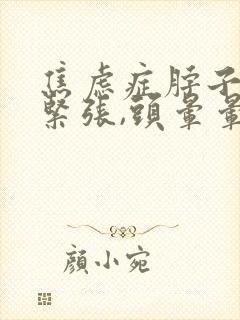 焦虑症脖子
緊張,頭暈暈
顏小宛